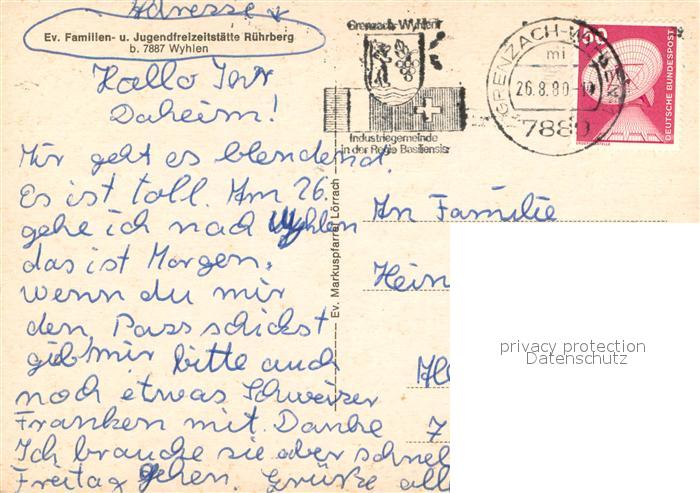 Adresse
Ev. Familien- u. Jugendfreizeitstätte Rührberg
b. 7887 Wyhlen
Hallo Ihr
Daheim!
Mir geht es blendend.
Es ist toll. Am 26.
gehe ich nach Wyhlen
das ist Morgen,
wenn du mir
den Pass schickst
gib mir bitte auch
noch etwas Schweizer
Franken mit. Danke
Ich brauche sie aber schnel
Freitag gehen. Grüße all
Ev. Markuspfarrei Lörrach
Grenzach-Wyhlen
Industriegemeinde
in der Regio Basiliensis
GRENZACH-WYHLEN
mi
26.8.80
7889
DEUTSCHE BUNDESPOST
An Familie
Hein
7
privacy protection
Datenschutz